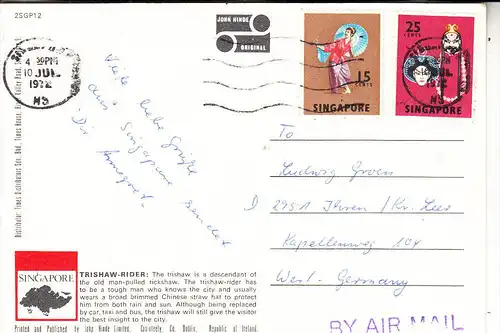 2SGP12
JOHN HINDE
ORIGINAL
4 30PM
10 JUL
1972
N3
15
CENTS
SINGAPORE
25
CENTS
SINGAPORE
10 JUL
1972
N3
Viele liebe Grüße
aus Singapore sendet
Dir Annegret.
To
Ludwig Groen
D 2951 Ihren / Kr. Leer
Kapellenweg 104
West-Germany
BY AIR MAIL
SINGAPORE
TRISHAW-RIDER: The trishaw is a descendant of
the old man-pulled rickshaw. The trishaw-rider has
to be a tough man who knows the city and usually
wears a broad brimmed Chinese straw hat to protect
him from both rain and sun. Although being replaced
by car, taxi and bus, the trishaw will still give the visitor
the best insight to the city.
Printed and Published by John Hinde Limited, Cabinteely, Co. Dublin, Republic of Ireland.
Distributor: Times Distributors Sdn. Bhd., Times House,